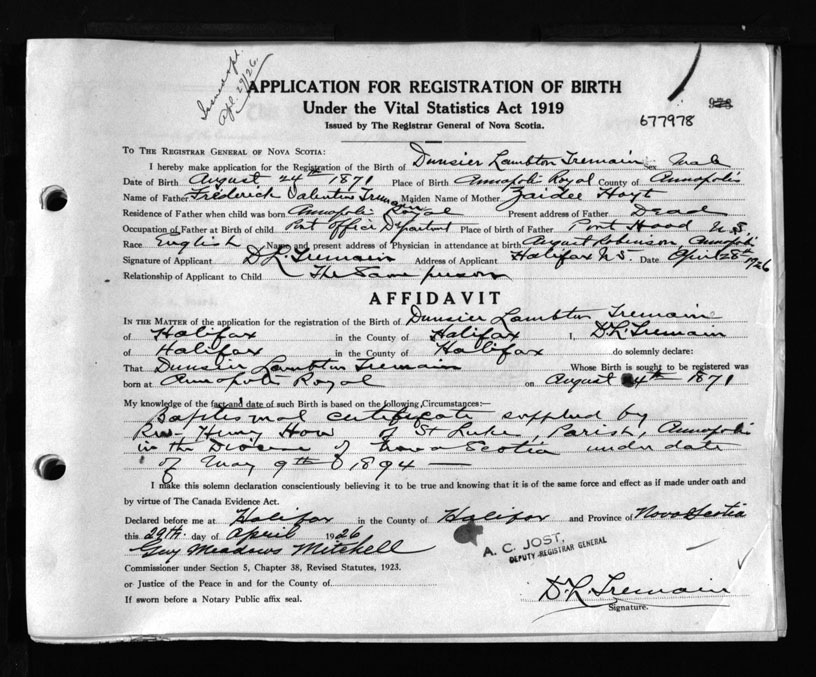 Apl. 29/26.
APPLICATION FOR REGISTRATION OF BIRTH
Under the Vital Statistics Act 1919
Issued by The Registrar General of Nova Scotia.
677978
TO THE REGISTRAR GENERAL OF NOVA SCOTIA:
I hereby make application for the Registration of the Birth of Dunsier Lambton Tremain Sex Male
Date of Birth August 24th 1871 Place of Birth Annapolis Royal County of Annapolis
Name of Father Frederick Valentine Tremain Maiden Name of Mother Zaidee Hoyt
Residence of Father when child was born Annapolis Royal Present address of Father Dead
Occupation of Father at Birth of child Post Office Department Place of birth of Father Port Hood N.S.
Race English Name and present address of Physician in attendance at birth August Robinson, Annapolis
Signature of Applicant D.L. Tremain Address of Applicant Halifax N.S. Date April 28th 1926
Relationship of Applicant to Child The Same person
AFFIDAVIT
IN THE MATTER of the application for the registration of the Birth of Dunsier Lambton Tremain
of Halifax in the County of Halifax I, D.L. Tremain
of Halifax in the County of Halifax do solemnly declare:
That Dunsier Lambton Tremain Whose Birth is sought to be registered was
born at Annapolis Royal on August 4th 1871
My knowledge of the fact and date of such Birth is based on the following Circumstances:—
Baptismal certificate supplied by
Rev. Henry How of St Luke, Parish, Annapolis
in the Diocese of Nova Scotia under date
of May 9th 1894 —
I make this solemn declaration conscientiously believing it to be true and knowing that it is of the same force and effect as if made under oath and
by virtue of The Canada Evidence Act.
Declared before me at Halifax in the County of Halifax and Province of Nova Scotia
this 29th. day of April 1926
Guy Meadows Mitchell
A. C. JOST,
DEPUTY REGISTRAR GENERAL
Commissioner under Section 5, Chapter 38, Revised Statutes, 1923.
or Justice of the Peace in and for the County of
D.L. Tremain
If sworn before a Notary Public affix seal.
Signature.